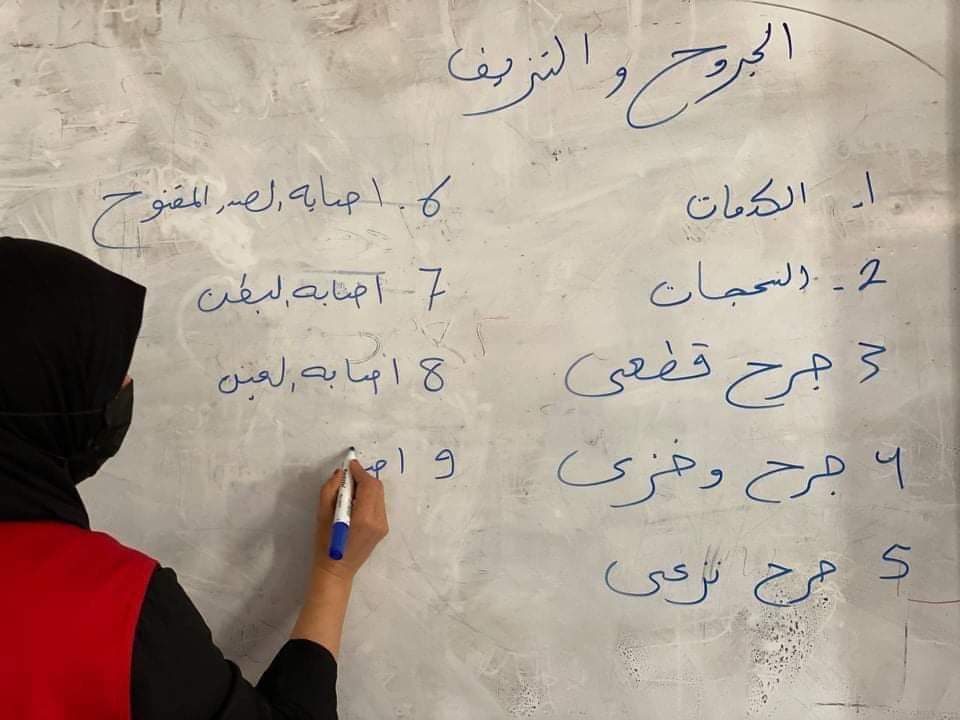 الجروح و النزيف
1. الكدمات
2. السحجات
3 جرح قطعي
4 جرح وخزى
5 جرح نزعى
6. اصابه الصدر المفتوح
7 اصابه البطن
8 اصابه العين
9 اصا